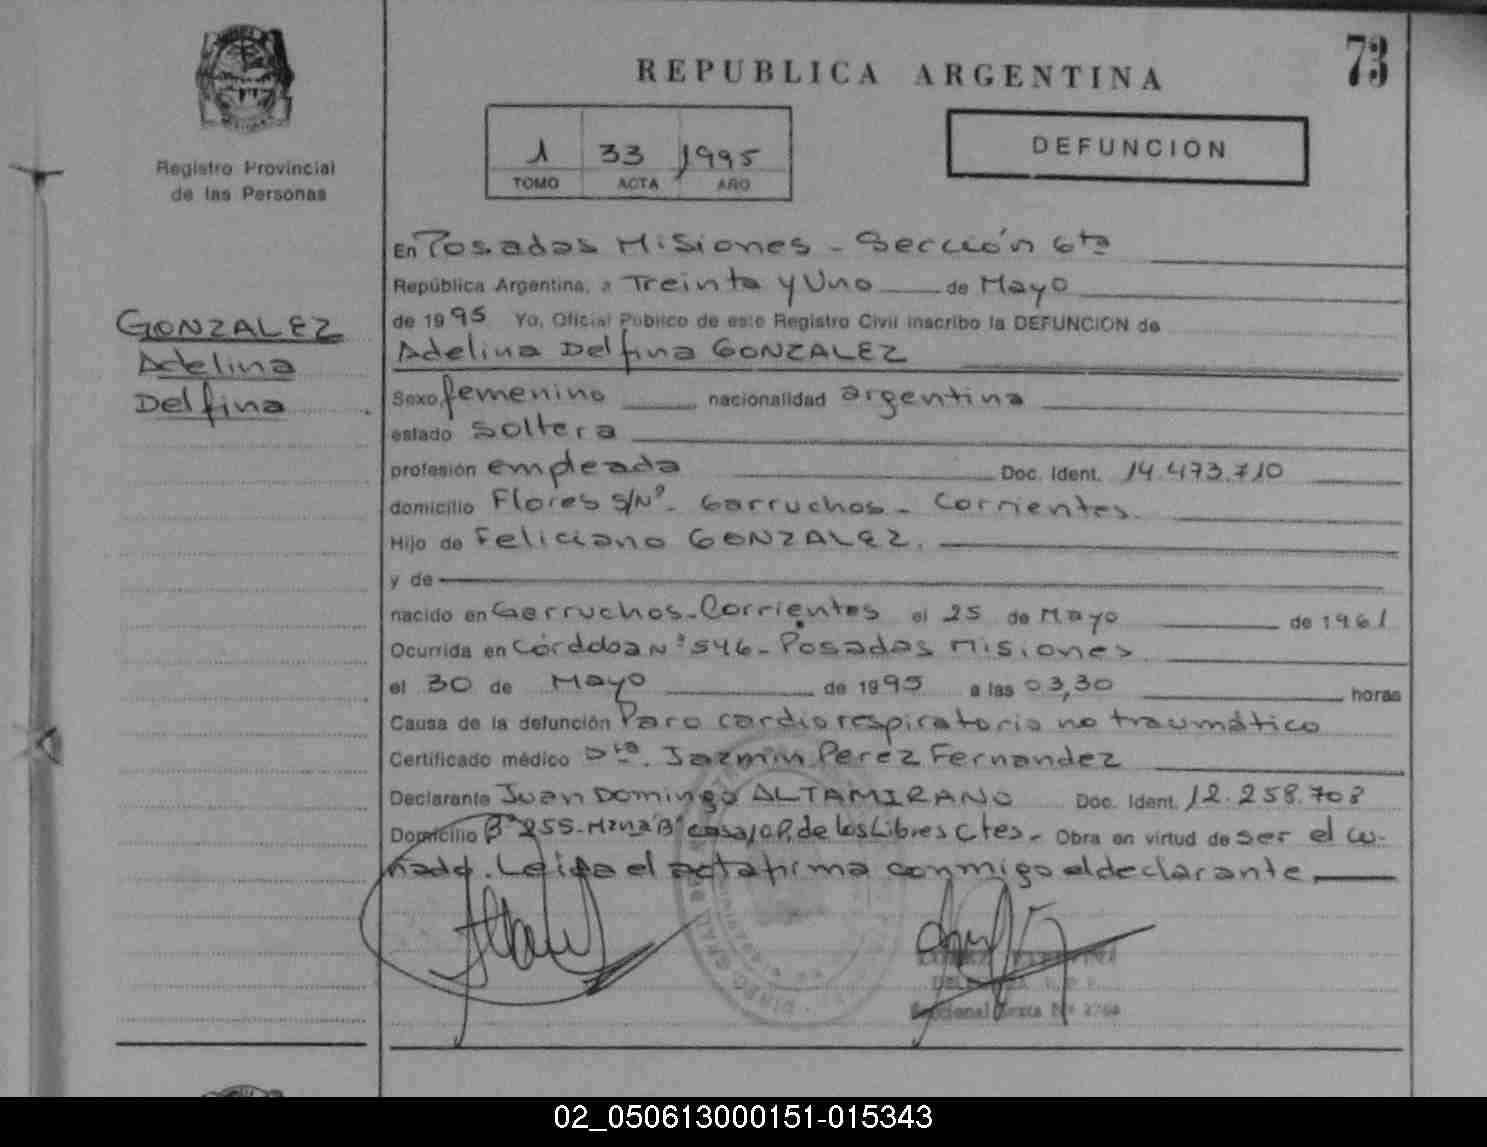 73
REPUBLICA ARGENTINA
Registro Provincial
de las Personas
1 33 1995
TOMO ACTA AÑO
DEFUNCION
GONZALEZ
Adelina
Delfina
En Posadas Misiones - Sección 6ta
República Argentina, a Treinta y Uno de Mayo
de 1995 Yo, Oficial Público de este Registro Civil inscribo la DEFUNCION de
Adelina Delfina GONZALEZ
Sexo femenino nacionalidad argentina
estado soltera
profesión empleada Doc. Ident. 14.473.710
domicilio Flores S/Nº - Garruchos - Corrientes.
Hijo de Feliciano GONZALEZ.
y de
nacido en Garruchos - Corrientes el 25 de Mayo de 1961
Ocurrida en Córdoba Nº 546 - Posadas Misiones
el 30 de Mayo de 1995 a las 03,30 horas
Causa de la defunción Paro cardiorespiratorio no traumático
Certificado médico Dra. Jazmin Perez Fernandez
Declarante Juan Domingo ALTAMIRANO Doc. Ident. 12.258.708
Domicilio Bº 255 - Mzna "B" casa 10 P. de los Libres Ctes. - Obra en virtud de ser el cu-
ñado. Leída el acta firma conmigo el declarante
Seccional Sexta Nº
02_050613000151-015343